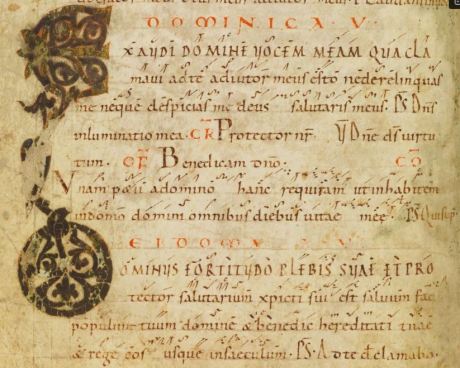 DOMINICA V
EXAUDI DOMINE VOCEM MEAM QUA CLA
mavi ad te adiutor meus esto ne derelinquas
me neque despicias me deus salutaris meus. PS Dns
inluminatio mea. GR Protector nr. V Dne ds virtu
tum. OF Benedicam dno. CO
Unam petii a domino hanc requiram ut inhabitem
in domo domini omnibus diebus uitae meę. PS
DOMINUS FORTITUDO PLEBIS SUAE ET PRO
tector salutarium xpicti sui est saluum fac
populum tuum domine & benedic hereditati tuae
& rege eos usque in saeculum. PS Ad te dne clamabo.